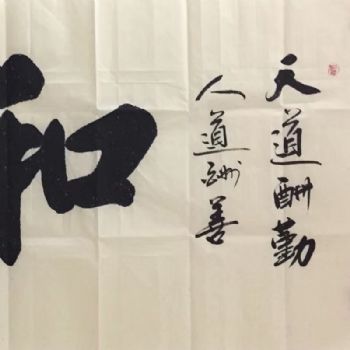 天道酬勤
人道酬善
和